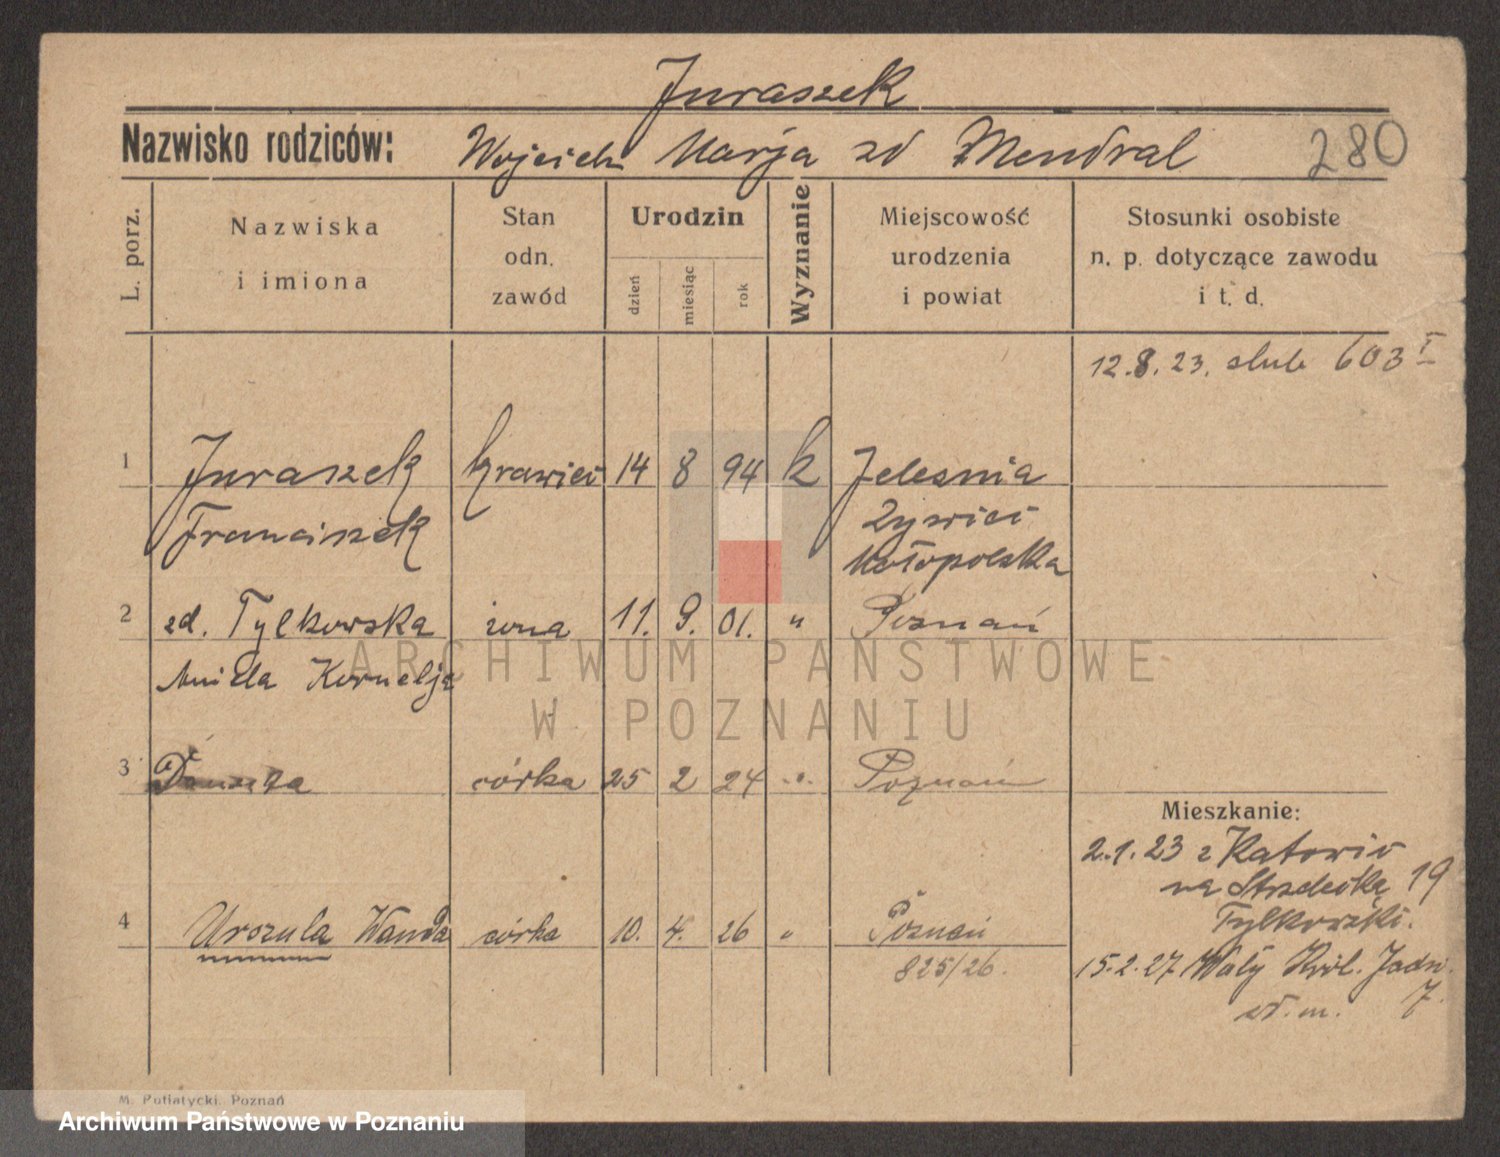 Juraszek
Nazwisko rodziców: Wojciech Marja zd Mendral 280
L. porz.
Nazwiska
i imiona
Stan
odn.
zawód
Urodzin
dzień
miesiąc
rok
Wyznanie
Miejscowość
urodzenia
i powiat
Stosunki osobiste
n. p. dotyczące zawodu
i t. d.
12.8.23. ślub 603 I
1 Juraszek krawiec 14 8 94 k Jelesnia
Franciszek Żywiec
Małopolska
2 zd. Tylkowska żona 11. 9. 01. " Poznań
Aniela Kornelja
3 Danuta córka 25 2 24 " Poznań
Mieszkanie:
2.1.23 z Katowic
na Strzelecką 19
Tylkowski.
4 Urszula Wanda córka 10. 4. 26 " Poznań
825/26.
15.2.27 Wały Król. Jadw.
7.
wł. m.
M. Putiatycki, Poznań
ARCHIWUM PAŃSTWOWE
W POZNANIU
Archiwum Państwowe w Poznaniu